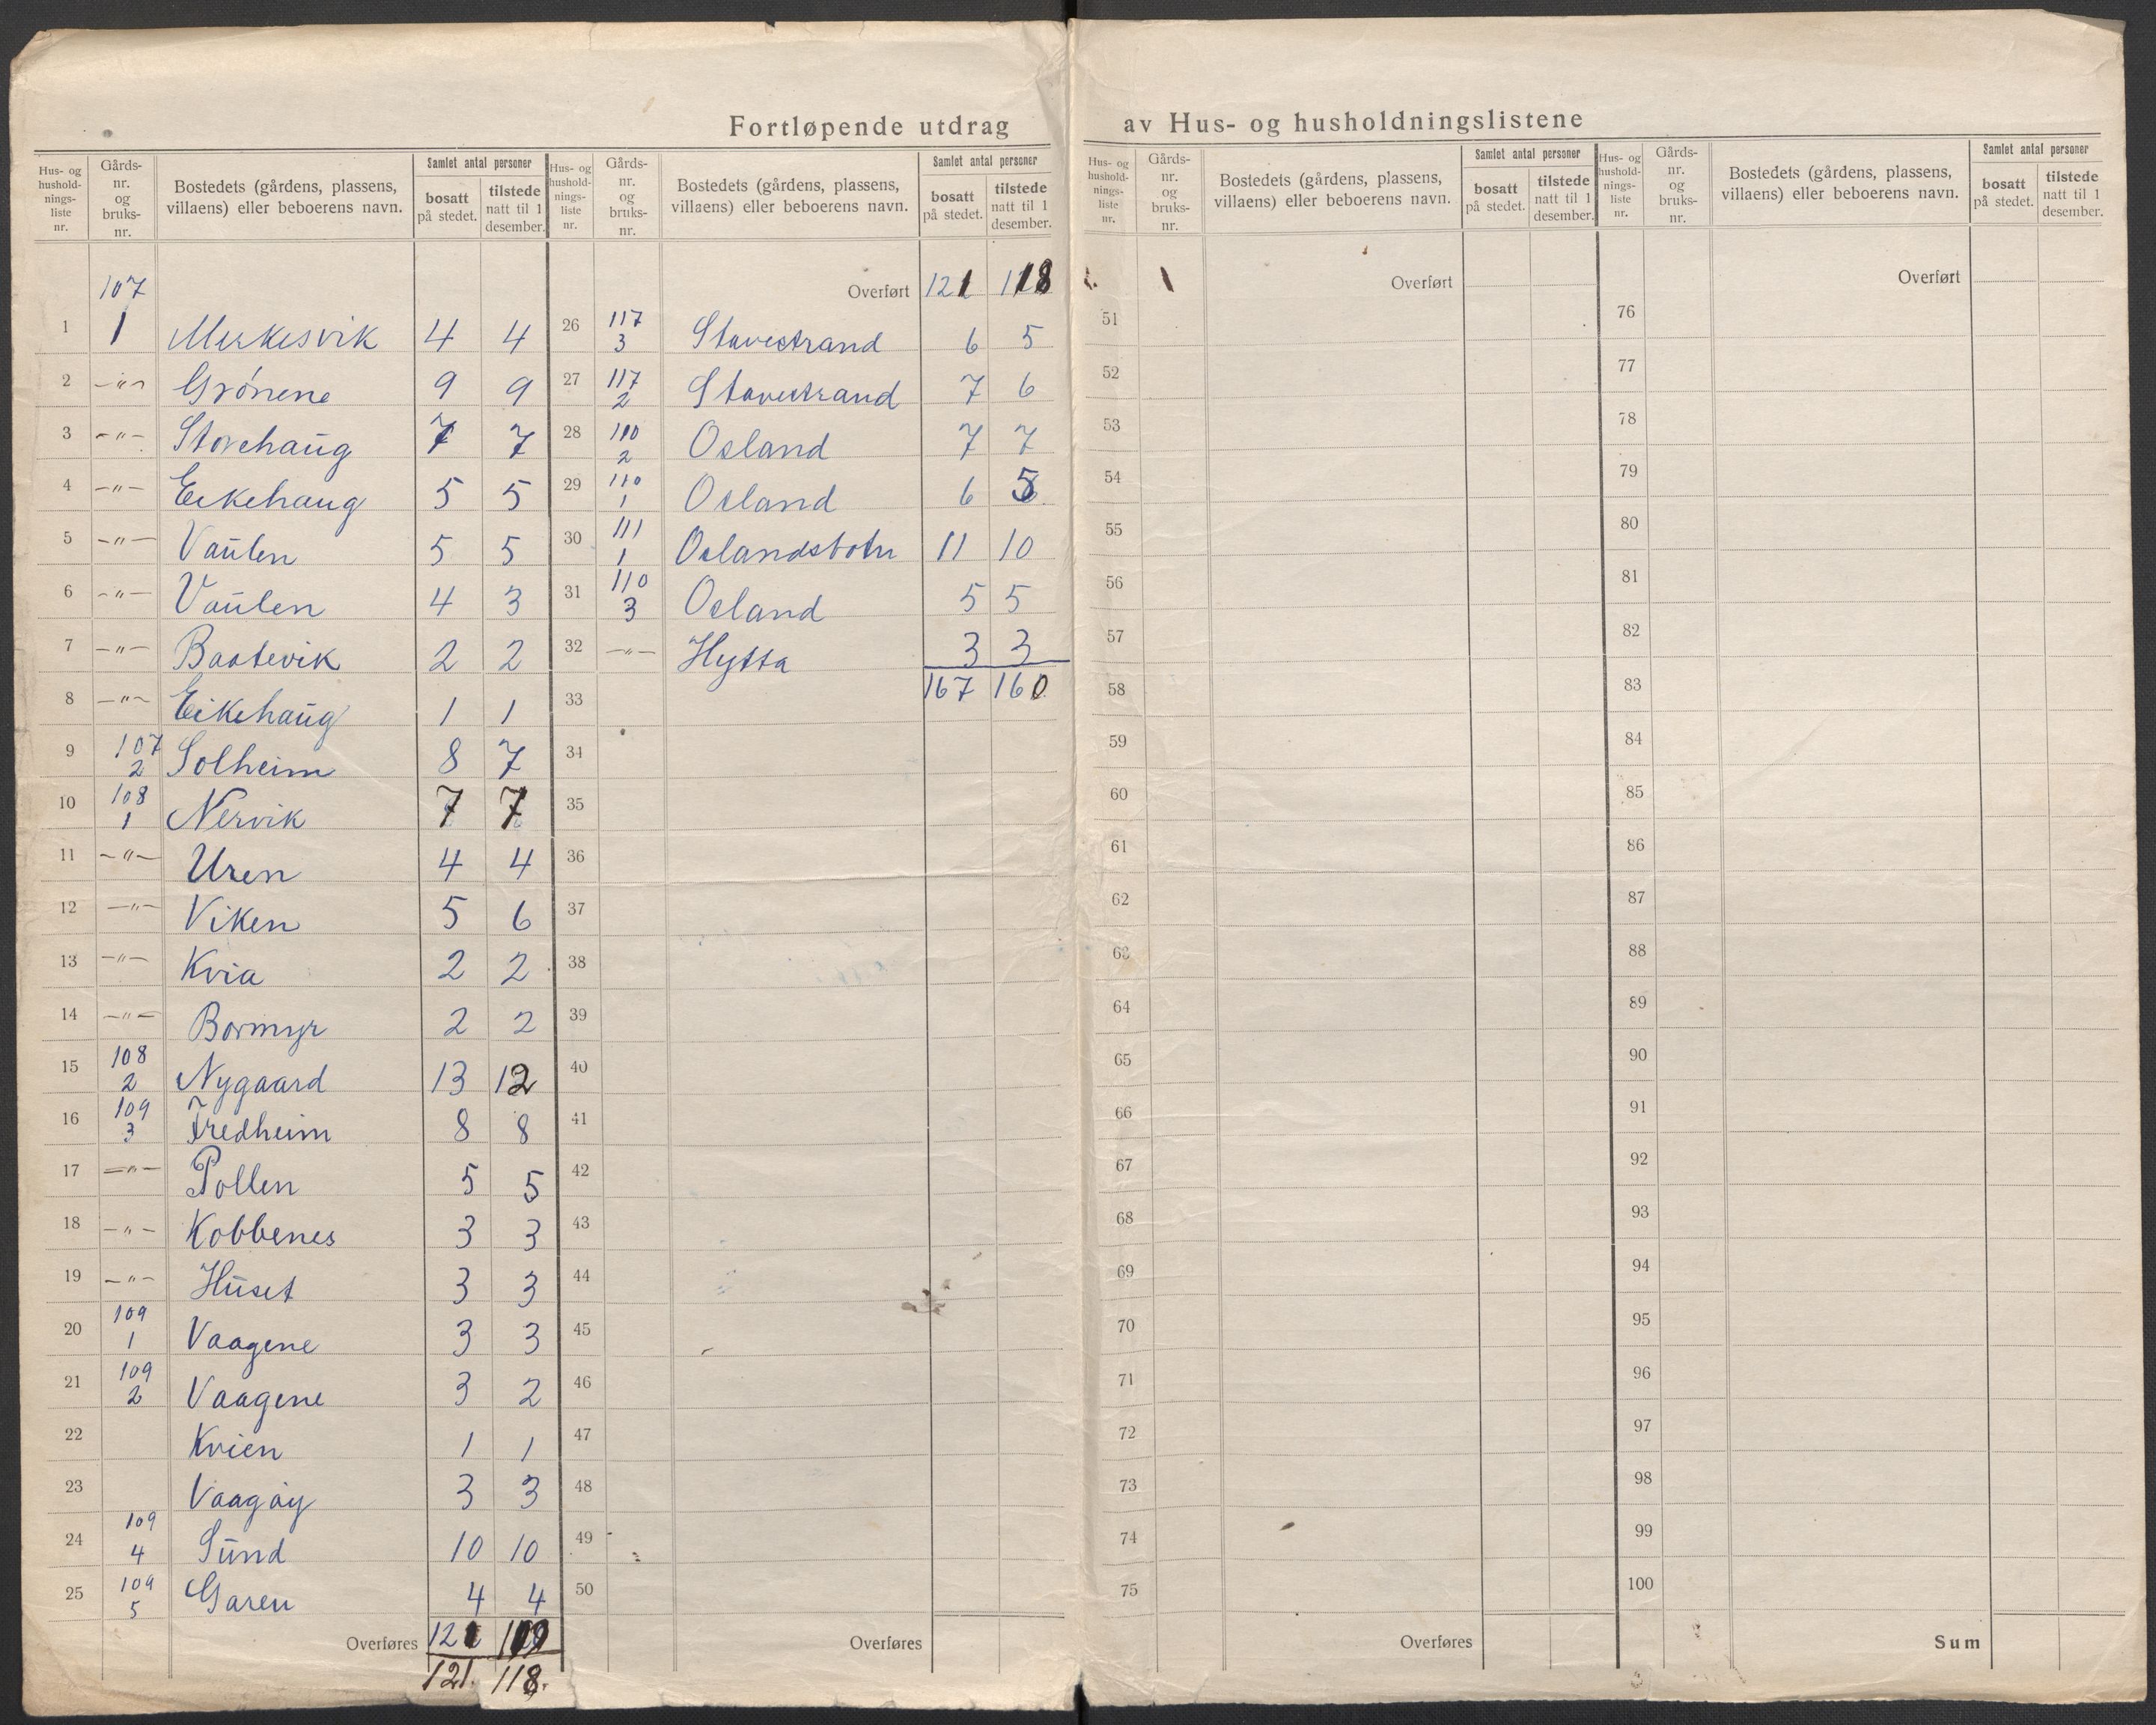 Fortløpende utdrag av Hus- og husholdningslistene
Hus- og hushold-nings-liste nr. | Gårds-nr. og bruks-nr. | Bostedets (gårdens, plassens, villaens) eller beboerens navn. | Samlet antal personer | bosatt på stedet. | tilstede natt til 1 desember.
107
1 | 1 | Merkesvik | 4 | 4
2 | -"- | Grónene | 9 | 9
3 | -"- | Storehaug | 7 | 7
4 | -"- | Eikehaug | 5 | 5
5 | -"- | Vaulen | 5 | 5
6 | -"- | Vaulen | 4 | 3
7 | -"- | Baatevik | 2 | 2
8 | -"- | Eikehaug | 1 | 1
9 | 107 2 | Solheim | 8 | 7
10 | 108 1 | Nervik | 7 | 7
11 | -"- | Uren | 4 | 4
12 | -"- | Viken | 5 | 6
13 | -"- | Kvia | 2 | 2
14 | -"- | Bormyr | 2 | 2
15 | 108 2 | Nygaard | 13 | 12
16 | 109 3 | Fredheim | 8 | 8
17 | -"- | Pollen | 5 | 5
18 | -"- | Kobbenes | 3 | 3
19 | -"- | Huset | 3 | 3
20 | 109 1 | Vaagene | 3 | 3
21 | 109 2 | Vaagene | 3 | 2
22 | Kvien | 1 | 1
23 | Vaagøy | 3 | 3
24 | 109 4 | Sund | 10 | 10
25 | 109 5 | Garen | 4 | 4
Overføres | 121
121. | 118.
Hus- og hushold-nings-liste nr. | Gårds-nr. og bruks-nr. | Bostedets (gårdens, plassens, villaens) eller beboerens navn. | Samlet antal personer | bosatt på stedet. | tilstede natt til 1 desember.
Overført | 121 | 118
26 | 117 3 | Stavestrand | 6 | 5
27 | 117 2 | Stavestrand | 7 | 6
28 | 110 2 | Osland | 7 | 7
29 | 110 1 | Osland | 6 | 5
30 | 111 1 | Oslandsbotn | 11 | 10
31 | 110 3 | Osland | 5 | 5
32 | -"- | Hytta | 3 | 3
33 | 167 | 160
34
35
36
37
38
39
40
41
42
43
44
45
46
47
48
49
50
Overføres
Hus- og hushold-nings-liste nr. | Gårds-nr. og bruks-nr. | Bostedets (gårdens, plassens, villaens) eller beboerens navn. | Samlet antal personer | bosatt på stedet. | tilstede natt til 1 desember.
Overført
51
52
53
54
55
56
57
58
59
60
61
62
63
64
65
66
67
68
69
70
71
72
73
74
75
Overføres
Hus- og hushold-nings-liste nr. | Gårds-nr. og bruks-nr. | Bostedets (gårdens, plassens, villaens) eller beboerens navn. | Samlet antal personer | bosatt på stedet. | tilstede natt til 1 desember.
Overført
76
77
78
79
80
81
82
83
84
85
86
87
88
89
90
91
92
93
94
95
96
97
98
99
100
Sum